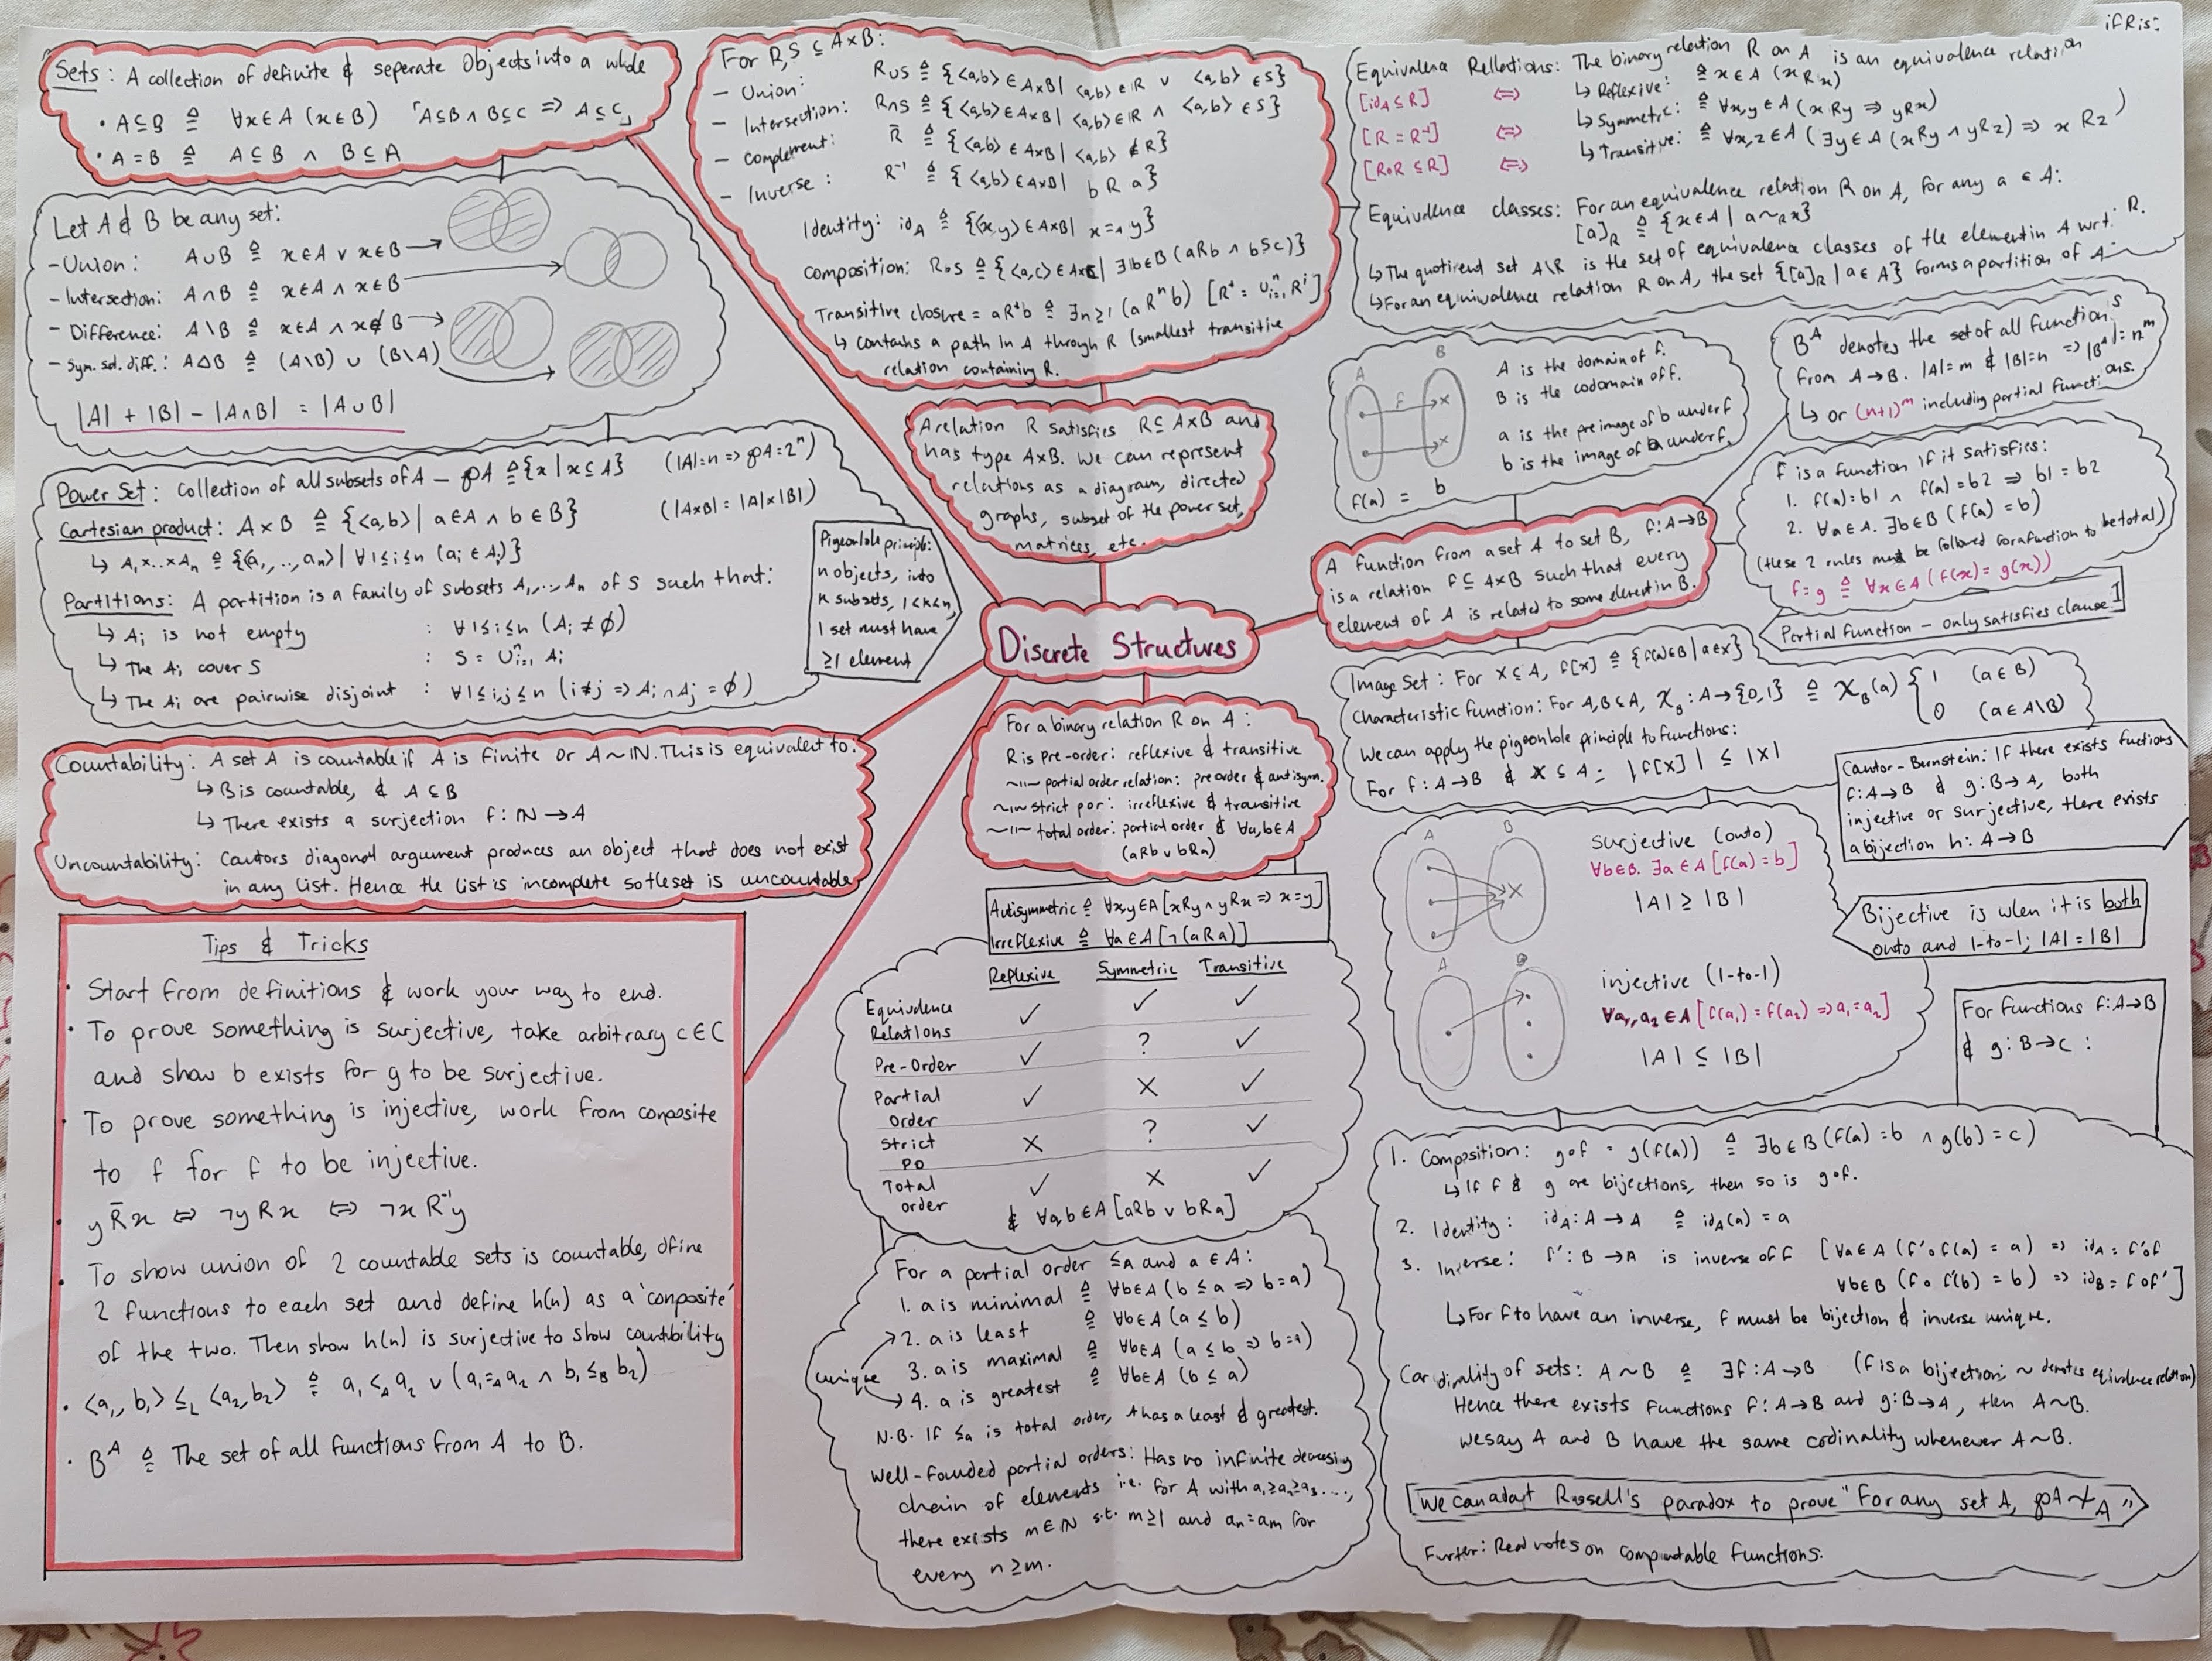 Sets: A collection of definite & seperate Objects into a whole
• A⊆B ≙ ∀x∈A (x∈B) 「A⊆B ∧ B⊆C ⇒ A⊆C」
• A=B ≙ A⊆B ∧ B⊆A
Let A & B be any set:
- Union: A∪B ≙ x∈A ∨ x∈B
- Intersection: A∩B ≙ x∈A ∧ x∈B
- Difference: A\B ≙ x∈A ∧ x∉B
- Sym. set. diff.: A△B ≙ (A\B) ∪ (B\A)
|A| + |B| - |A∩B| = |A∪B|
Power Set: Collection of all subsets of A - ℘A ≙ {x | x⊆A} (|A|=n => ℘A=2ⁿ)
Cartesian product: A×B ≙ {<a,b> | a∈A ∧ b∈B} (|A×B| = |A|×|B|)
↳ A₁×..×Aₙ ≙ {<a₁,..,aₙ> | ∀1≤i≤n (aᵢ∈Aᵢ)}
Partitions: A partition is a family of subsets A₁,..,Aₙ of S such that:
↳ Aᵢ is not empty : ∀1≤i≤n (Aᵢ≠∅)
↳ The Aᵢ cover S : S = ∪ⁿᵢ₌₁ Aᵢ
↳ The Aᵢ are pairwise disjoint : ∀1≤i,j≤n (i≠j => Aᵢ∩Aⱼ=∅)
Pigeonhole principle:
n objects, into
k subsets, 1<k<n,
1 set must have
≥1 element
Countability: A set A is countable if A is finite or A~ℕ. This is equivalent to:
↳ B is countable, & A⊆B
↳ There exists a surjection f: ℕ→A
Uncountability: Cantors diagonal argument produces an object that does not exist
in any list. Hence the list is incomplete so the set is uncountable
Tips & Tricks
• Start from definitions & work your way to end.
• To prove something is surjective, take arbitrary c∈C
and show b exists for g to be surjective.
• To prove something is injective, work from composite
to f for f to be injective.
• y R̄ x ⇔ ¬y R x ⇔ ¬x R⁻¹ y
• To show union of 2 countable sets is countable, dfine
2 functions to each set and define h(n) as a 'composite'
of the two. Then show h(n) is surjective to show countibility
• <a₁, b₁> ≤_L <a₂, b₂> ≙ a₁ <_A a₂ ∨ (a₁ =_A a₂ ∧ b₁ ≤_B b₂)
• Bᴬ ≙ The set of all functions from A to B.
For R,S ⊆ A×B:
- Union: R∪S ≙ {<a,b> ∈ A×B | <a,b> ∈ R ∨ <a,b> ∈ S}
- Intersection: R∩S ≙ {<a,b> ∈ A×B | <a,b> ∈ R ∧ <a,b> ∈ S}
- Complement: R̄ ≙ {<a,b> ∈ A×B | <a,b> ∉ R}
- Inverse: R⁻¹ ≙ {<a,b> ∈ A×B | b R a}
Identity: id_A ≙ {<x,y> ∈ A×B | x =_A y}
Composition: R∘S ≙ {<a,c> ∈ A×C | ∃b∈B (aRb ∧ bSc)}
Transitive closure = aR⁺b ≙ ∃n≥1 (aRⁿb) [R⁺ = ∪ⁿᵢ₌₁ Rⁱ]
↳ contains a path in A through R (smallest transitive
relation containing R.
A relation R satisfies R⊆A×B and
has type A×B. We can represent
relations as a diagram, directed
graphs, subset of the power set,
matrices, etc.
Discrete Structures
For a binary relation R on A:
R is Pre-order: reflexive & transitive
~11~ partial order relation: preorder & antisym.
~11~ strict por: irreflexive & transitive
~11~ total order: partial order & ∀a,b∈A
(aRb ∨ bRa)
Antisymmetric ≙ ∀x,y∈A [xRy ∧ yRx => x=y]
Irreflexive ≙ ∀a∈A [¬(aRa)]
Reflexive Symmetric Transitive
Equivalence Relations ✓ ✓ ✓
Pre-Order ✓ ? ✓
Partial Order ✓ ✗ ✓
Strict PO ✗ ? ✓
Total order ✓ ✗ ✓
& ∀a,b∈A [aRb ∨ bRa]
For a partial order ≤_A and a∈A:
1. a is minimal ≙ ∀b∈A (b≤a => b=a)
2. a is least ≙ ∀b∈A (a≤b)
3. a is maximal ≙ ∀b∈A (a≤b => b=a)
unique
4. a is greatest ≙ ∀b∈A (b≤a)
N.B. If ≤a is total order, A has a least & greatest.
Well-Founded partial orders: Has no infinite decreasing
chain of elements i.e. for A with a₁≥a₂≥a₃....,
there exists m∈ℕ s.t. m≥1 and aₙ=aₘ for
every n≥m.
if R is:
Equivalence Rellations: The binary relation R on A is an equivalence relation
[id_A ⊆ R] <=> ↳ Reflexive: ≙ x∈A (xRx)
[R = R⁻¹] <=> ↳ Symmetric: ≙ ∀x,y∈A (xRy => yRx)
[R∘R ⊆ R] <=> ↳ Transitive: ≙ ∀x,z∈A (∃y∈A (xRy ∧ yRz) => x R z)
Equivalence classes: For an equivalence relation R on A, for any a∈A:
[a]_R ≙ {x∈A | a ~_R x}
↳ The quotirend set A\R is the set of equivalence classes of the element in A wrt. R.
↳ For an equivalence relation R on A, the set {[a]_R | a∈A} forms a partition of A
A B
f
A is the domain of f.
B is the codomain of f.
a is the preimage of b under f
b is the image of a under f.
f(a) = b
Bᴬ denotes the set of all functions
from A→B. |A|=m & |B|=n => |Bᴬ|=nᵐ
↳ or (n+1)ᵐ including partial functions.
A function from a set A to set B, f:A→B
is a relation f⊆A×B such that every
element of A is related to some element in B.
f is a function if it satisfies:
1. f(a)=b1 ∧ f(a)=b2 => b1=b2
2. ∀a∈A. ∃b∈B (f(a)=b)
(these 2 rules must be followed for a function to be total)
f=g ≙ ∀x∈A (f(x)=g(x))
Partial function - only satisfies clause 1
Image Set: For X⊆A, f[x] ≙ {f(a)∈B | a∈x}
Characteristic function: For A,B⊆A, χ_B: A→{0,1} ≙ χ_B(a) { 1 (a∈B)
0 (a∈A\B)
We can apply the pigeonhole principle to functions:
For f: A→B & X⊆A = |f[X]| ≤ |X|
Cantor-Bernstein: If there exists fuctions
f:A→B & g:B→A, both
injective or surjective, there exists
a bijection h: A→B
A B
surjective (onto)
∀b∈B. ∃a∈A [f(a)=b]
|A| ≥ |B|
Bijective is when it is both
onto and 1-to-1; |A| = |B|
A B
injective (1-to-1)
∀a₁,a₂∈A [f(a₁)=f(a₂) => a₁=a₂]
|A| ≤ |B|
For functions f:A→B
& g:B→C :
1. Composition: g∘f = g(f(a)) ≙ ∃b∈B (f(a)=b ∧ g(b)=c)
↳ If f & g are bijections, then so is g∘f.
2. Identity: id_A: A→A ≙ id_A(a) = a
3. Inverse: f': B→A is inverse of f [∀a∈A (f'∘f(a) = a) => id_A = f'∘f
∀b∈B (f∘f'(b) = b) => id_B = f∘f']
↳ For f to have an inverse, f must be bijection & inverse unique.
Cardinality of sets: A~B ≙ ∃f: A→B (f is a bijection; ~ denotes equivdence relation)
Hence there exists functions f: A→B and g: B→A, then A~B.
we say A and B have the same codinality whenever A~B.
We can adapt Russell's paradox to prove "For any set A, ℘A ≁ A"
Further: Read notes on computable functions.